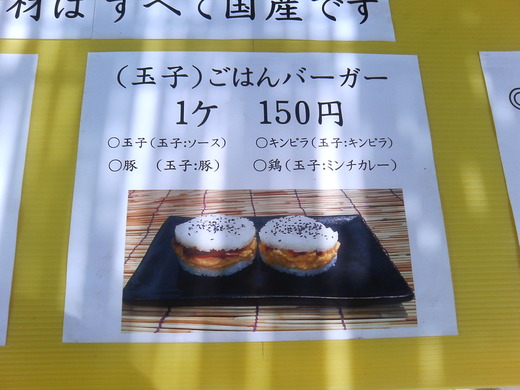 材は すべて国産です
(玉子)ごはんバーガー
1ケ 150円
○玉子(玉子:ソース) ○キンピラ(玉子:キンピラ)
○豚 (玉子:豚) ○鶏(玉子:ミンチカレー)